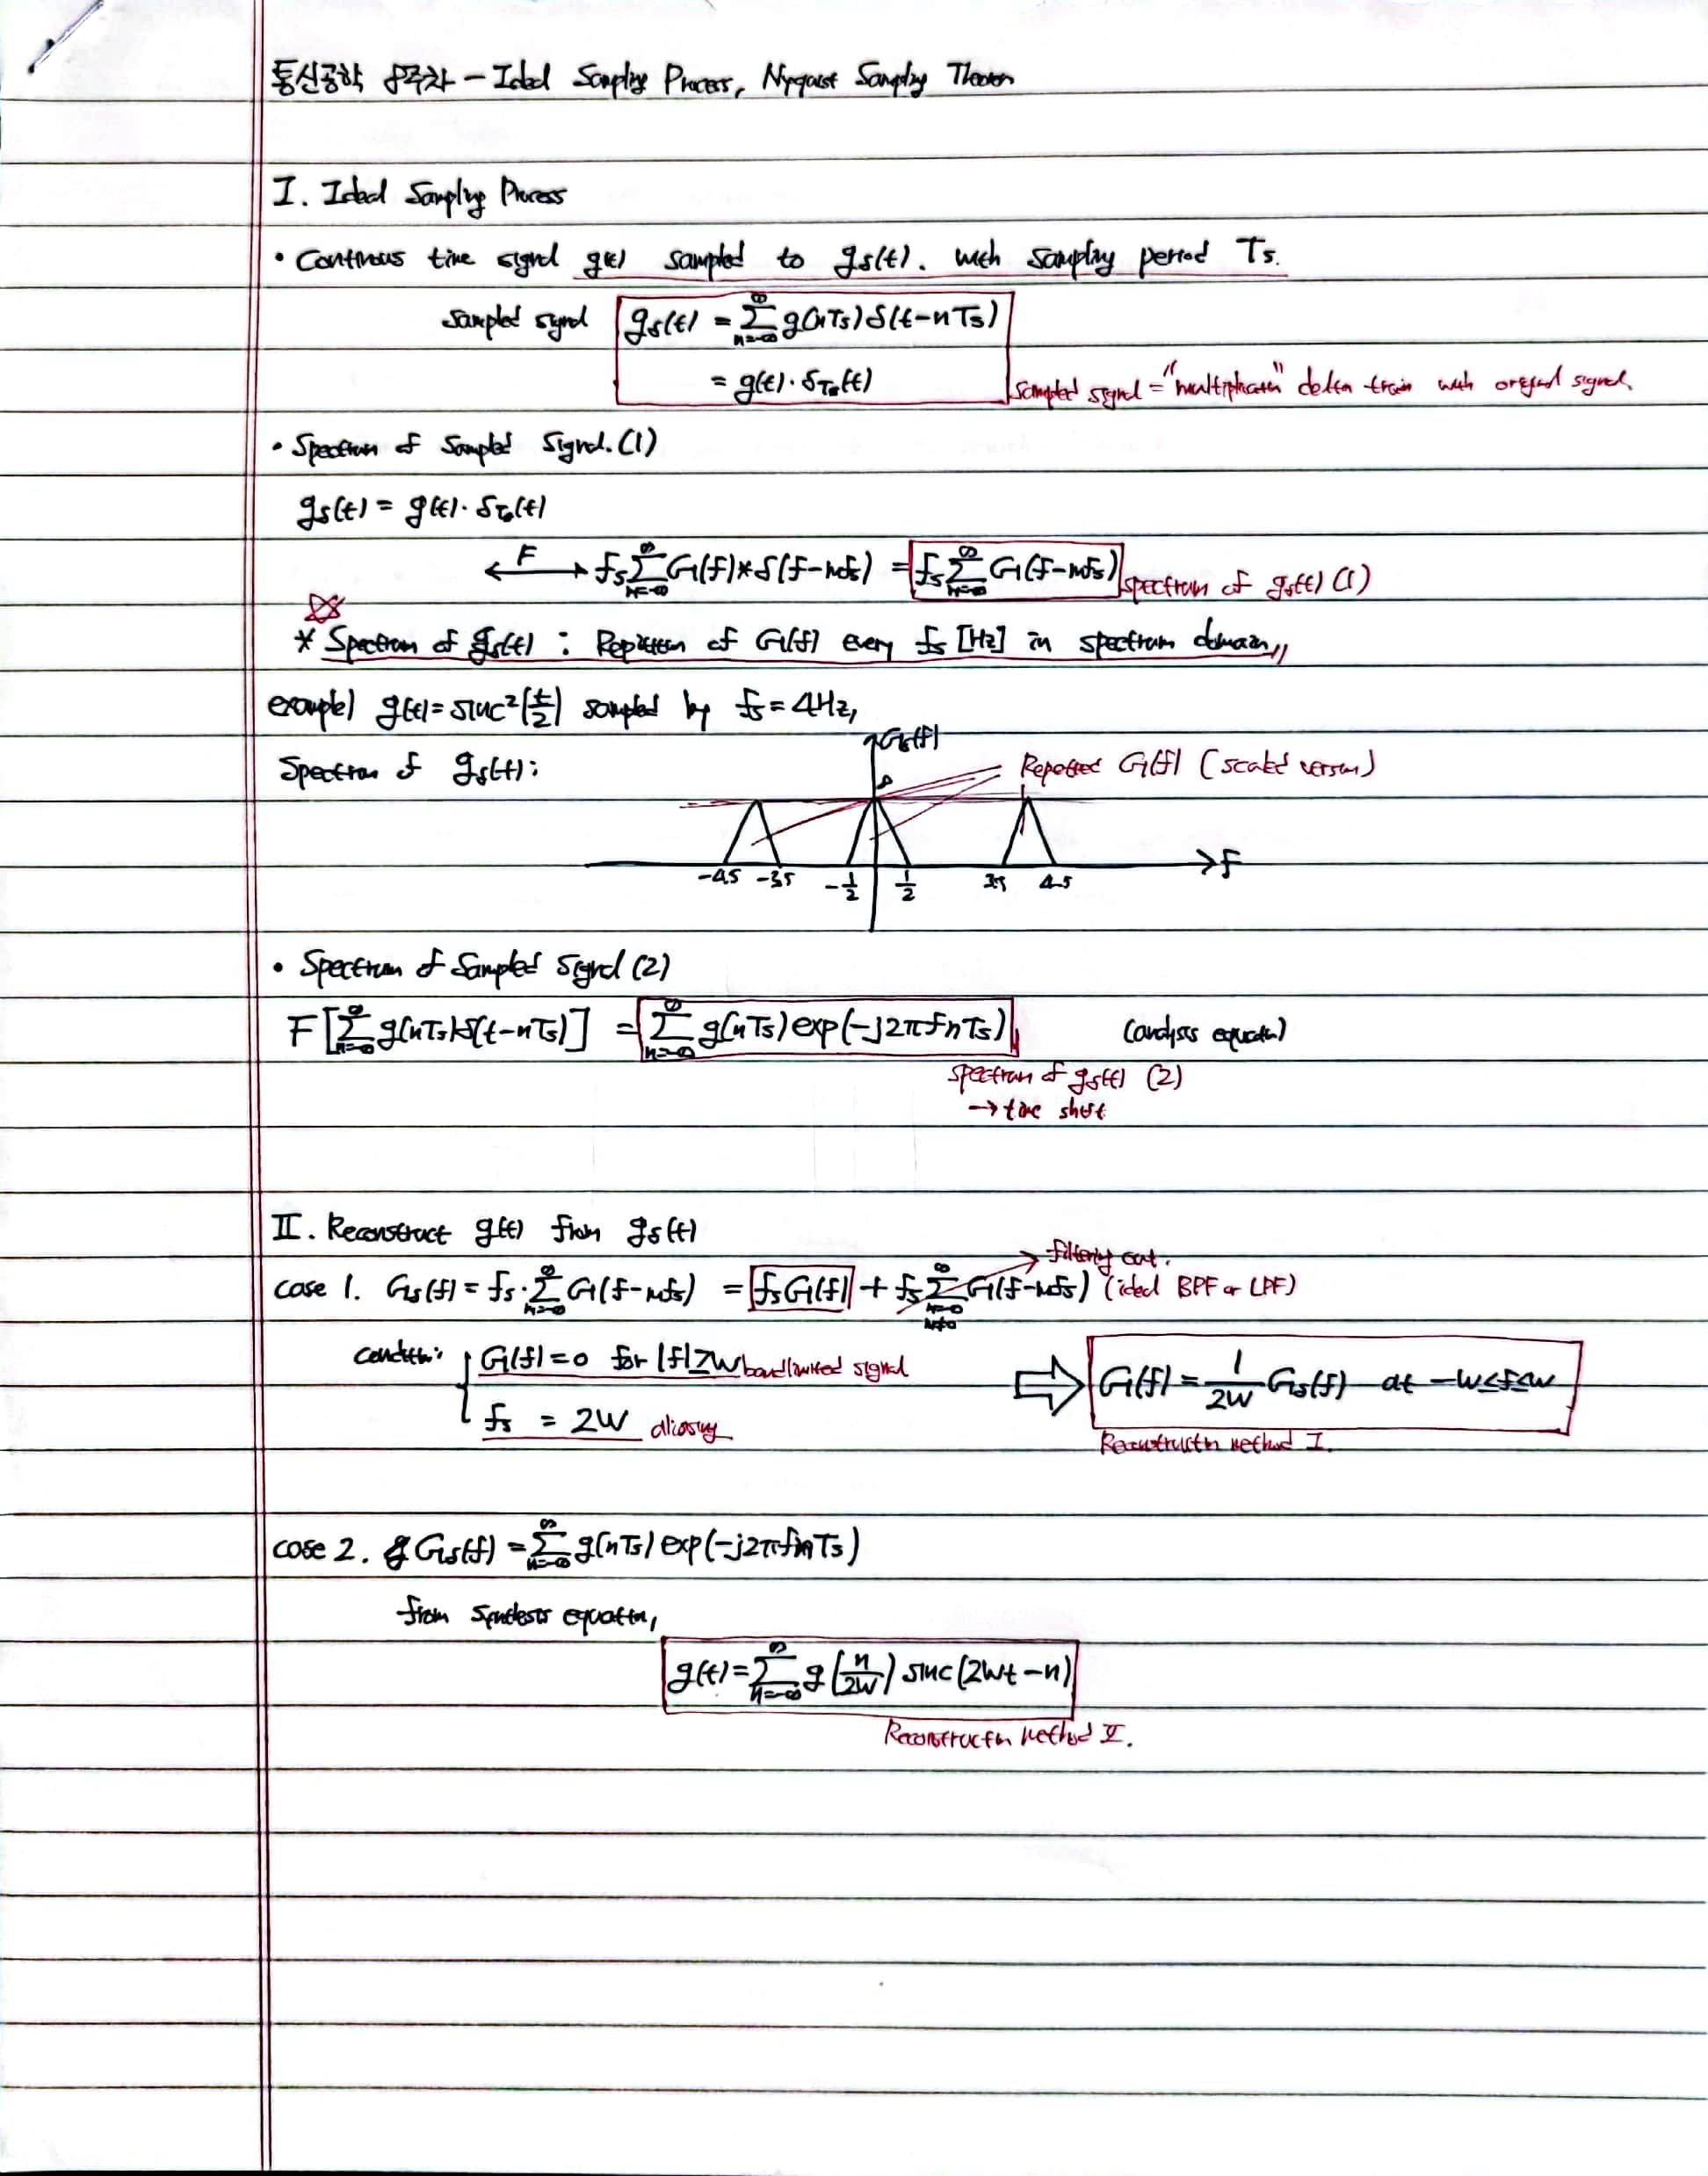 통신공학 8주차 - Ideal Sampling Process, Nyquist Sampling Theorem
I. Ideal Sampling Process
• Continous time signal g(t) sampled to gs(t). with sampling period Ts.
sampled signal gδ(t) = Σ_{n=-∞}^{∞} g(nTs) δ(t-nTs)
= g(t)·δTs(t)
sampled signal = "multiplication" delta train with original signal
• Spectrum of Sampled Signal. (1)
gδ(t) = g(t)·δTs(t)
<-F-> fs Σ_{n=-∞}^{∞} G(f)*δ(f-nfs) = fs Σ_{n=-∞}^{∞} G(f-nfs) spectrum of gδ(t) (1)
* Spectrum of gδ(t) : Repitition of G(f) every fs [Hz] in spectrum domain,,
example) g(t) = sinc²(t/2) sampled by fs = 4Hz,
Gδ(f)
Spectrum of gδ(t):
Repeated G(f) (scaled version)
8
f
-4.5 -3.5 -1/2 1/2 3.5 4.5
• Spectrum of Sampled Signal (2)
F[Σ_{n=-∞}^{∞} g(nTs)δ(t-nTs)] = Σ_{n=-∞}^{∞} g(nTs) exp(-j2πfnTs) (analysis equation)
spectrum of gδ(t) (2)
→ time shift
II. Reconstruct g(t) from gδ(t)
filtering out.
case 1. Gδ(f) = fs·Σ_{n=-∞}^{∞} G(f-nfs) = fsG(f) + fs Σ_{n=-∞, n≠0}^{∞} G(f-nfs) (ideal BPF or LPF)
condition: G(f)=0 for |f|≥W bandlimited signal
⇒ G(f) = 1/2W Gδ(f) at -W≤f≤W
fs = 2W aliasing
Reconstructn method I.
case 2. Gδ(f) = Σ_{n=-∞}^{∞} g(nTs) exp(-j2πfnTs)
from Synthesis equation,
g(t) = Σ_{n=-∞}^{∞} g(n/2W) sinc(2Wt-n)
Reconstructn method II.